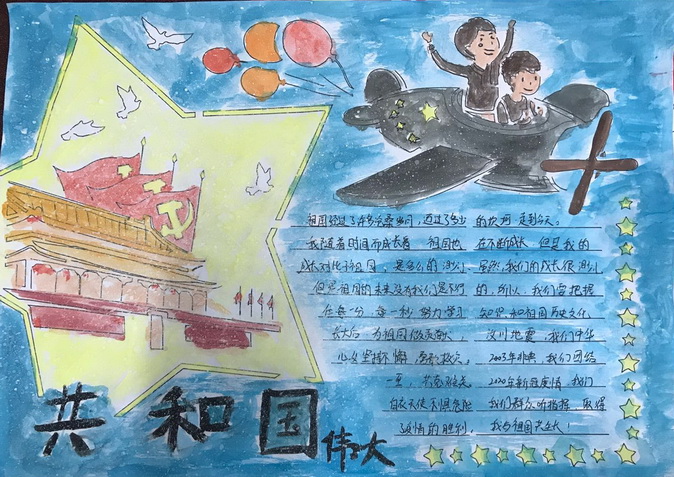 祖国经过了许多沧桑岁月，迈过了多少的坎坷走到今天。
我随着时间而成长着 祖国也在不断成长 但是我的
成长对比于祖国，是多么的渺小 虽然我们的成长很渺小
但是祖国的未来没有我们是不行的，所以，我们会把握
在每一分，每一秒 努力学习知识，和祖国历史文化，
长大后，为祖国做贡献，汶川地震，我们中华
儿女坚持不懈，2003年非典，我们团结
一至，2020年新冠疫情，我们
白衣天使不惧危险 我们群众听指挥，取得
疫情的胜利，我与祖国共成长！
共和国
伟大